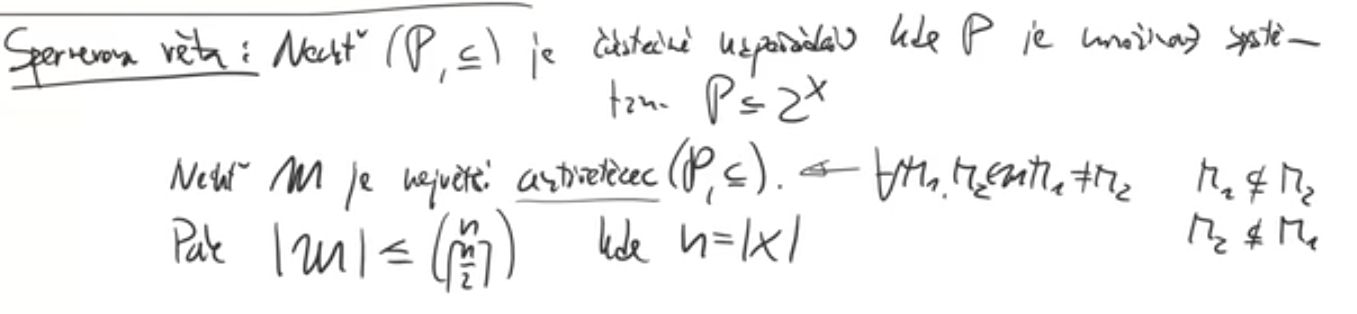 Spernerova věta : Nechť (P, ⊆) je částečné uspořádání kde P je množinový systé-
tzn. P ⊆ 2^X
Nechť M je největší antiřetězec (P, ⊆). ← ∀M₁, M₂ ∈ M M₁ ≠ M₂ M₁ ⊈ M₂
M₂ ⊈ M₁
Pak |M| ≤ (n ⌈n/2⌉) kde n = |X|